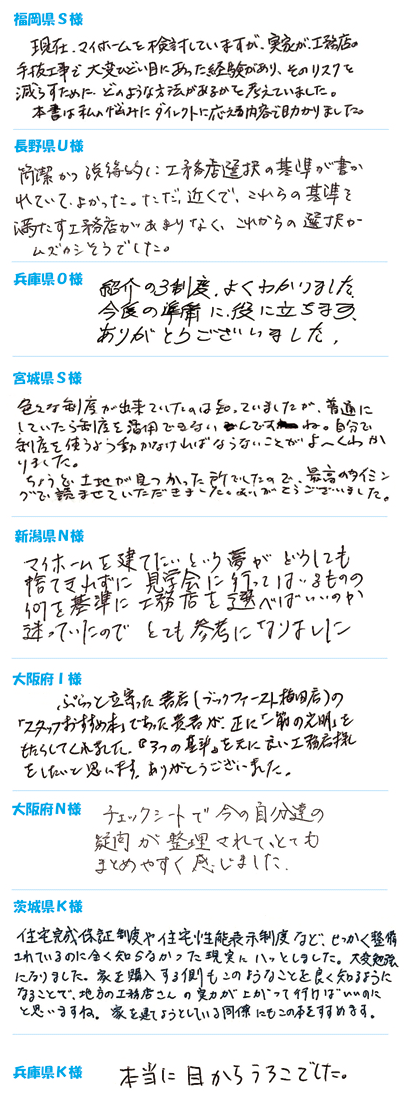 福岡県S様
現在、マイホームを検討していますが、実家が、工務店の
手抜工事で大変ひどい目にあった経験があり、そのリスクを
減らすために、どのような方法があるかを考えていました。
本書は私の悩みにダイレクトに応える内容で助かりました。
長野県U様
簡潔かつ説得的に工務店選択の基準が書か
れていて、よかった。ただ、近くで、これらの基準を
満たす工務店があまりなく、これからの選択が
ムズカシそうでした。
兵庫県O様
紹介の3制度、よくわかりました。
今後の準備に、役に立ちます、
ありがとうございました。
宮城県S様
色々な制度が出来ていたのは知っていましたが、普通に
していたら制度を活用できないんですね。自分で
制度を使うよう動かなければならないことがよ〜くわか
りました。
ちょうど土地が見つかった所でしたので、最高のタイミン
グで読ませていただきました。ありがとうございました。
新潟県N様
マイホームを建てたいという夢がどうしても
捨てきれずに見学会に行ってはいるものの
何を基準に工務店を選べばいいのか
迷っていたのでとても参考になりました
大阪府I様
ぷらっと立寄った書店(ブックファースト梅田店)の
「スタッフおすすめ本」であった貴書が、正に「一筋の光明」を
もたらしてくれました。『3つの基準』を元に良い工務店探し
をしたいと思います。ありがとうございました。
大阪府N様
チェックシートで今の自分達の
疑問が整理されて、とても
まとめやすく感じました。
茨城県K様
住宅完成保証制度や住宅性能表示制度など、せっかく整備
されているのに全く知らなかった現実にハッとしました。大変勉強
になりました。家を購入する側もこのようなことを良く知るように
なることで、地方の工務店さんの実力が上がって行けばいいのに
と思いますね。家を建てようとしている同僚にもこの本をすすめます。
兵庫県K様
本当に目からうろこでした。